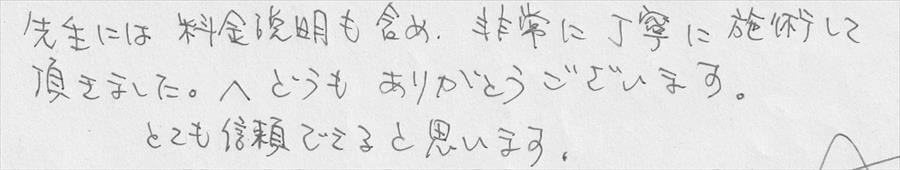 先生には 料金説明も含め、非常に丁寧に施術して
頂きました。へどうも ありがとうございます。
とても信頼できると思います。